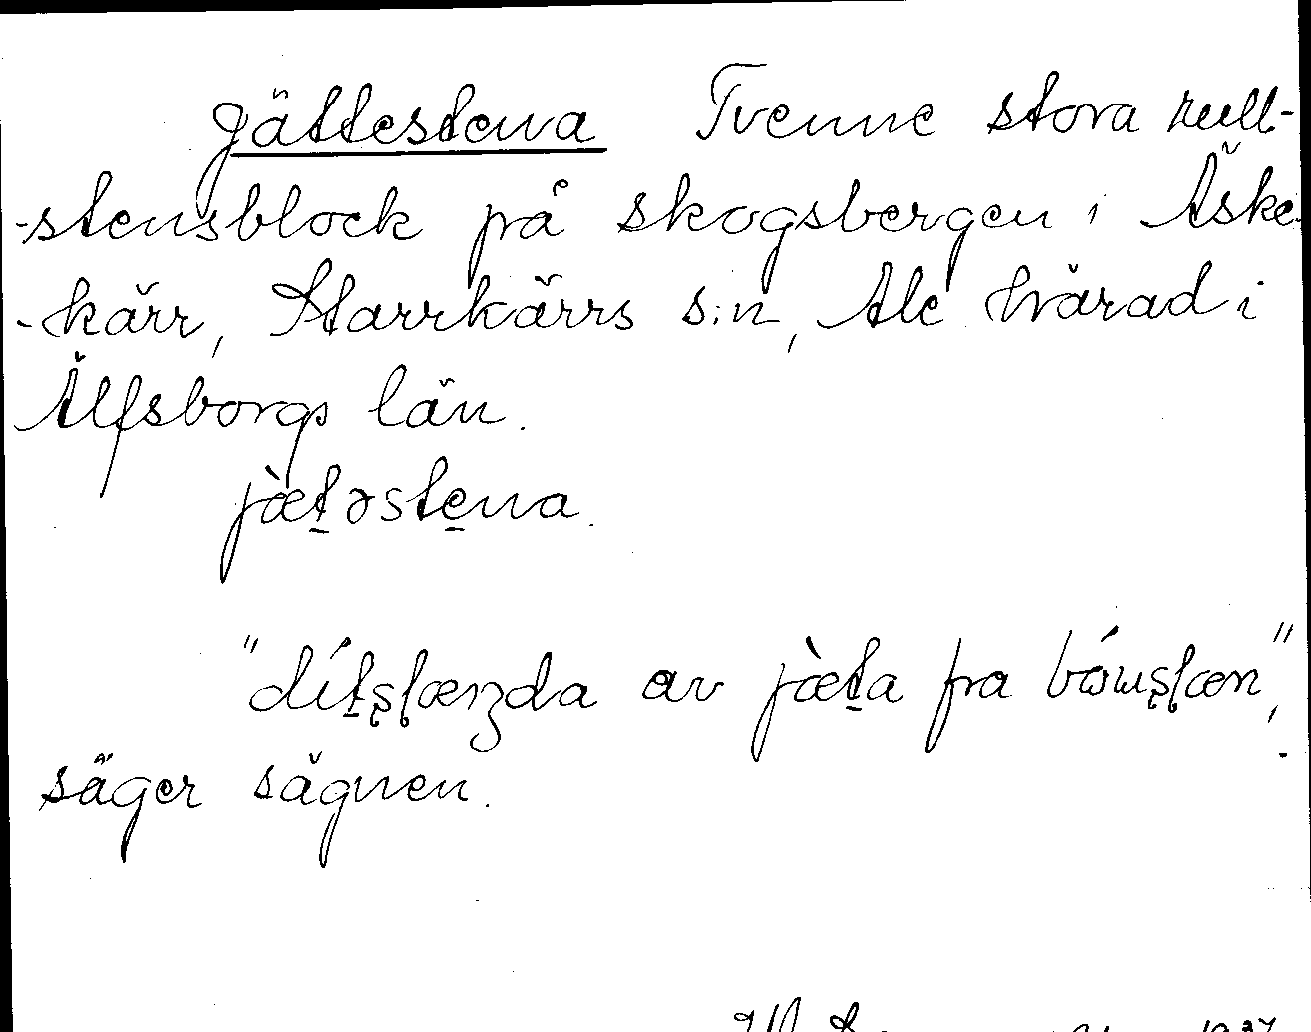 jättestena Tvenne stora rull-
-stensblock på skogsbergen i Äske-
-kärr, Starrkärrs s:n, Ale härad i
Älfsborgs län.
jæ̀t̠əste̠na.
"dít̠ʂʈæŋda av jæ̀t̠a fra bɷ́ɯʂʈæn",
säger sägnen.